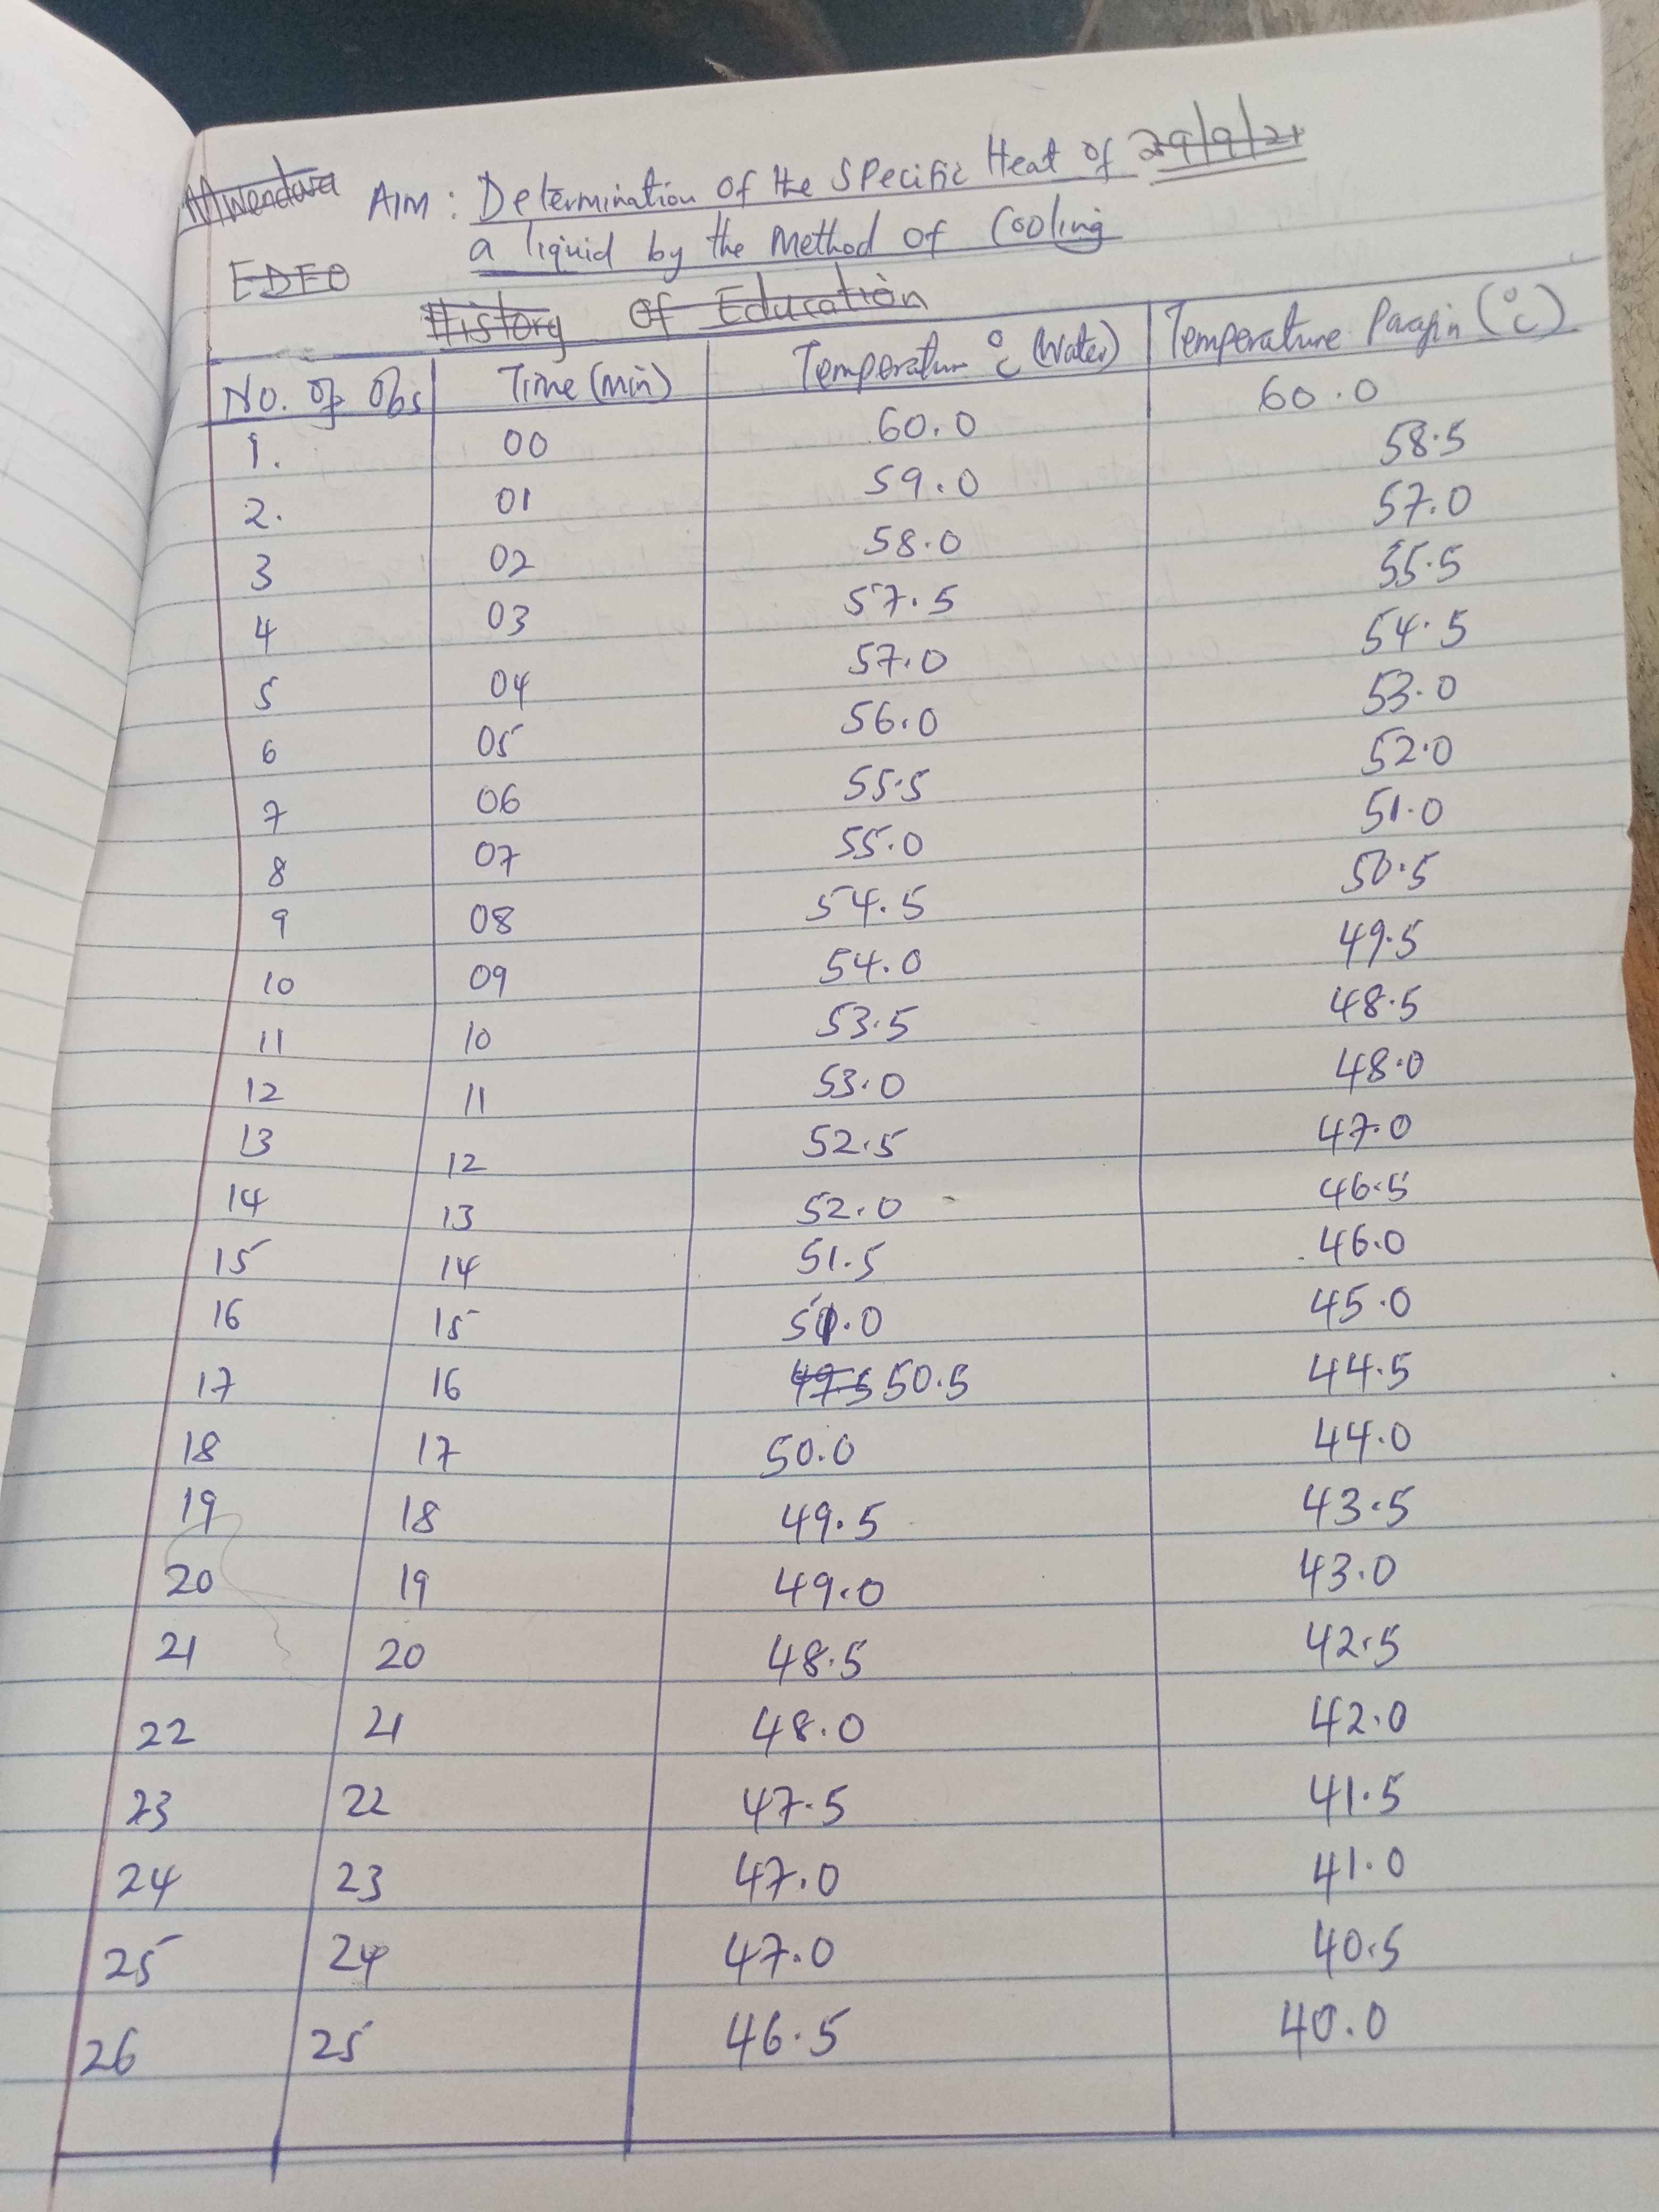 Mwendwa Aim: Determination of the Specific Heat of 29/9/21
a liquid by the Method of Cooling
EDFO
History of Education
No. of Obs Time (min) Temperature °C (Water) Temperature Parafin (°C)
1. 00 60.0 60.0
2. 01 59.0 58.5
3 02 58.0 57.0
4 03 57.5 55.5
5 04 57.0 54.5
6 05 56.0 53.0
7 06 55.5 52.0
8 07 55.0 51.0
9 08 54.5 50.5
10 09 54.0 49.5
11 10 53.5 48.5
12 11 53.0 48.0
13 12 52.5 47.0
14 13 52.0 46.5
15 14 51.5 46.0
16 15 51.0 45.0
17 16 49.5 50.5 44.5
18 17 50.0 44.0
19 18 49.5 43.5
20 19 49.0 43.0
21 20 48.5 42.5
22 21 48.0 42.0
23 22 47.5 41.5
24 23 47.0 41.0
25 24 47.0 40.5
26 25 46.5 40.0